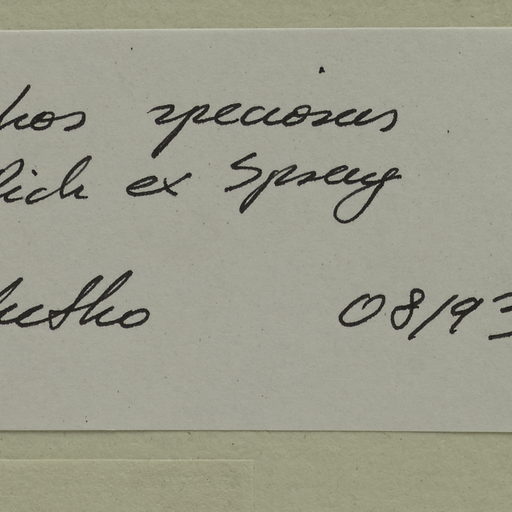 hos speciosus
lich ex Spreng
hetko 08/93